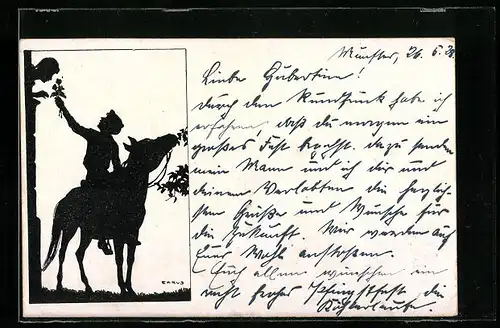 Münster, 26. 5. 
Liebe Hubertin!
durch den Rundfunk habe ich
erfahren, daß du morgen ein
großes Fest hast. dazu senden
mein Mann und ich dir und
deinem Verlobten die herzlich-
sten Grüße und Wünsche für
die Zukunft. Wir werden auf
Euer Wohl anstoßen.
Euch allen wünschen ein
recht frohes Pfingstfest die
CARUS